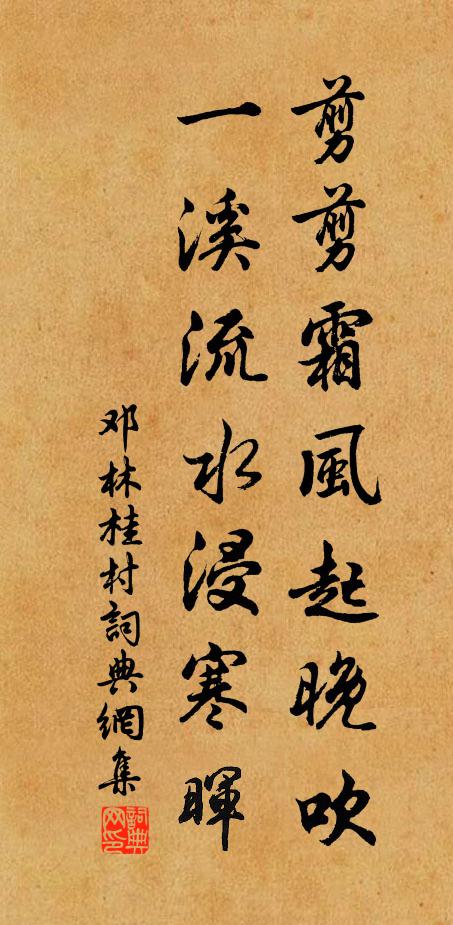 剪剪霜風起晚吹
一溪流水浸寒暉
邓林桂村詞典網集
詞典網印